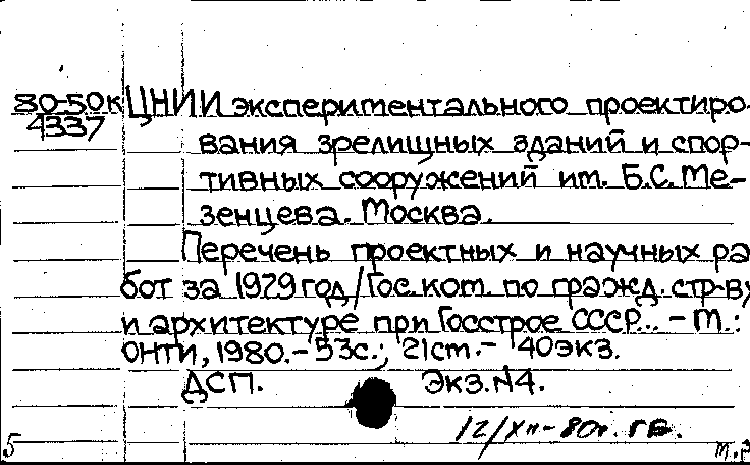 80-50к ЦНИИ экспериментального проектиро-
4337
вания зрелищных зданий и спор-
тивных сооружений им. Б.С. Ме-
зенцева. Москва.
Перечень проектных и научных ра
бот за 1979 год / Гос. ком. по гражд. стр-ву
и архитектуре при Госстрое СССР... - М.:
ОНТИ, 1980. - 53с.; 21см. - 40экз.
ДСП. Экз.N4.
12/XII-80г.
5